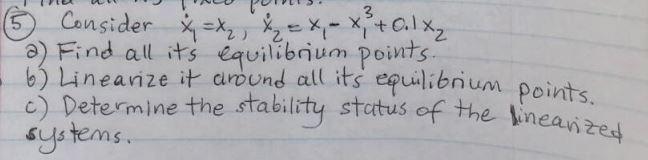 ⑤ Consider ẋ₁=x₂, ẋ₂=x₁-x₁³+0.1x₂
a) Find all its equilibrium points.
b) Linearize it around all its equilibrium points.
c) Determine the stability status of the linearized
systems.